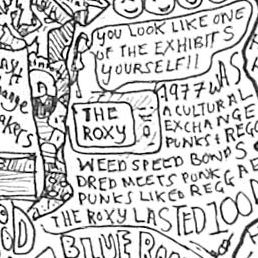 YOU LOOK LIKE ONE
OF THE EXHIBITS
YOURSELF!!
1977 WAS
A CULTURAL
EXCHANGE
PUNKS & REGG
THE
ROXY
WEED SPEED BONDS
DRED MEETS PUNK
PUNKS LIKED REGGAE
THE ROXY LASTED 100 D
BLUE